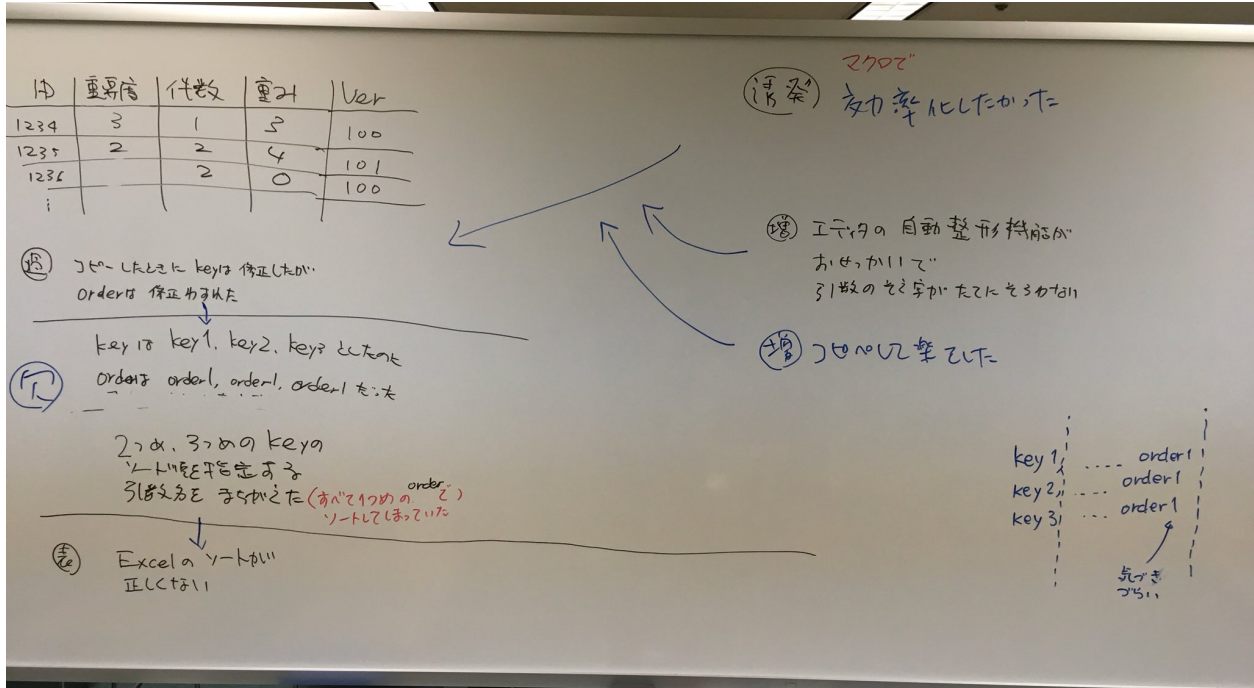 ID 重要度 件数 重み Ver
1234 3 1 3 100
1235 2 2 4 101
1236 2 0 100
過 コピーしたときに keyは 修正したが
orderは 修正わすれた
keyは key1, key2, key3 としたのに
orderは order1, order1, order1 だった
欠
2つめ、3つめの keyの
ソート順を指定する
引数名を まちがえた (すべて1つめの order で)
ソートしてしまっていた
表 Excelの ソートが
正しくない
誘発 マクロで
効率化したかった
増 エディタの 自動整形機能が
おせっかいで
引数のそえ字が たてに そろわない
増 コピペして楽でした
key1 .... order1
key2 .... order1
key3 ... order1
気づき
づらい